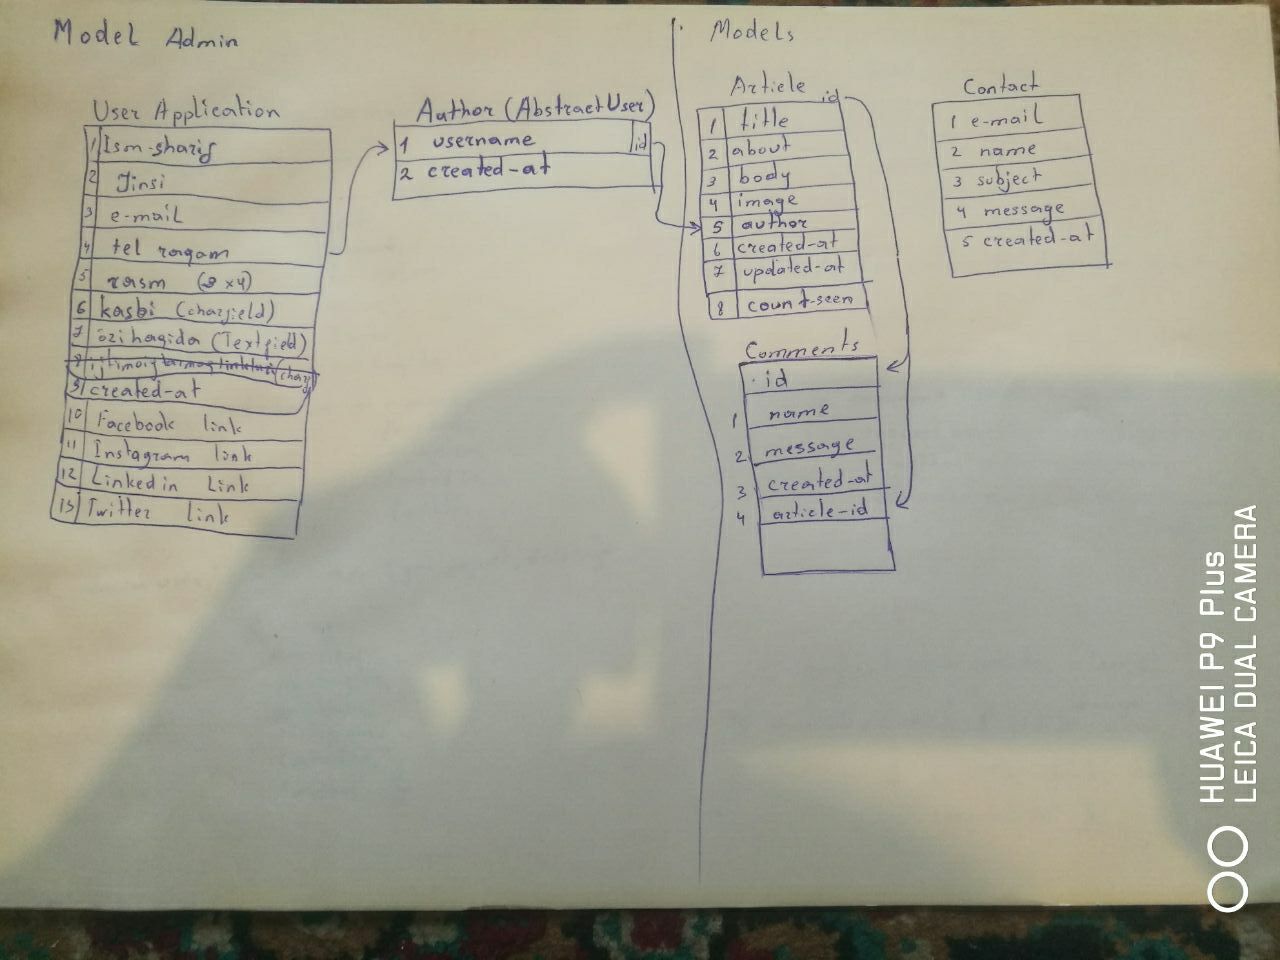 Model Admin
User Application
1 Ism-sharif
2 Jinsi
3 e-mail
4 tel raqam
5 rasm (3x4)
6 kasbi (charfield)
7 o'zi haqida (Textfield)
8 ijtimoiy tarmoq linklari (char
9 created-at
10 Facebook link
11 Instagram link
12 Linkedin Link
13 Twitter link
Author (AbstractUser)
1 username id
2 created-at
Models
Article id
1 title
2 about
3 body
4 image
5 author
6 created-at
7 updated-at
8 count-seen
Comments
id
1 name
2 message
3 created-at
4 article-id
Contact
1 e-mail
2 name
3 subject
4 message
5 created-at
HUAWEI P9 Plus
LEICA DUAL CAMERA